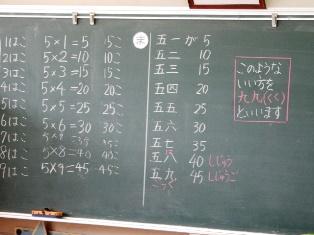 1はこ 5×1=5 5こ
2はこ 5×2=10 10こ
3はこ 5×3=15 15こ
4はこ 5×4=20 20こ
5はこ 5×5=25 25こ
6はこ 5×6=30 30こ
7はこ 5×7=35 35こ
8はこ 5×8=40 40こ
9はこ 5×9=45 45こ
五一が 5
五二 10
五三 15
五四 20
五五 25
五六 30
五七 35
五八 40 しじゅう
五九 45 しじゅうご
ごっく
このような
いい方を
九九(くく)
といいます